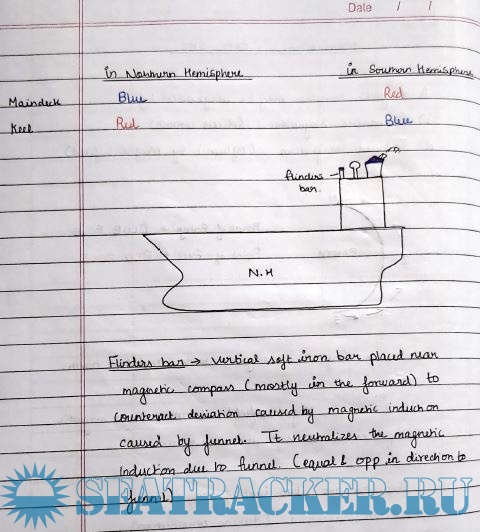 Date / /
in Northern Hemisphere in Southern Hemisphere
Maindeck Blue Red
Keel Red Blue
flinders
bar.
N.H
Flinders bar → Vertical soft iron bar placed near
magnetic compass (mostly in the forward) to
counteract deviation caused by magnetic induction
caused by funnel. It neutralizes the magnetic
induction due to funnel. (equal & opp in direction to
funnel)
SEATRACKER.RU